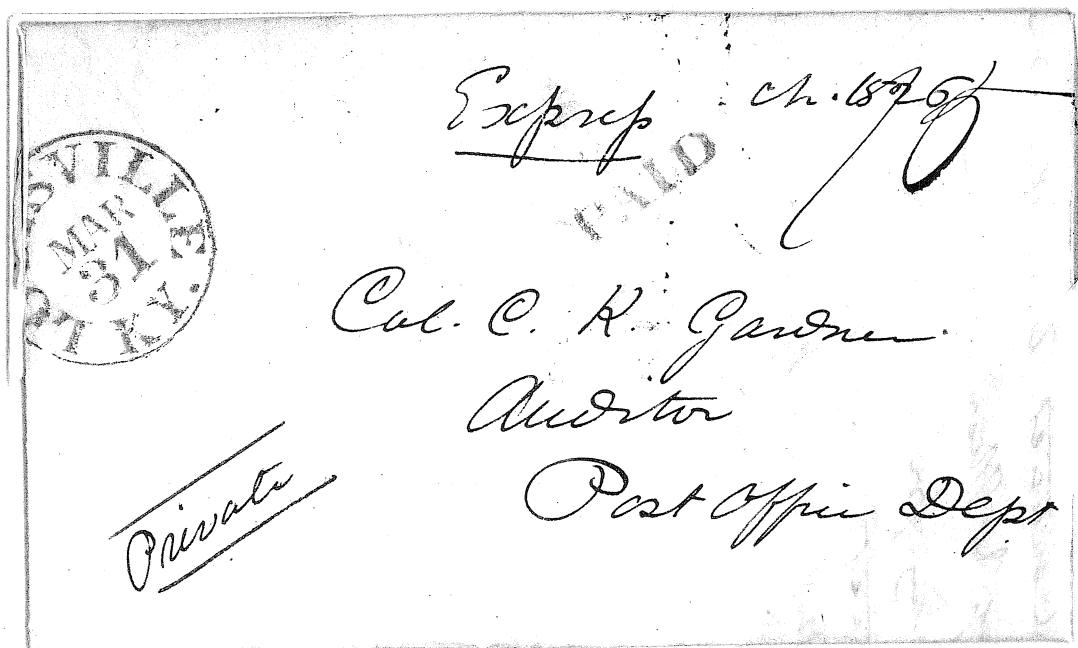 Express ch. 
PAID
SVILLE KY.
MAR
31
Col. C. K. Gardner
Auditor
Post Office Dept
Private